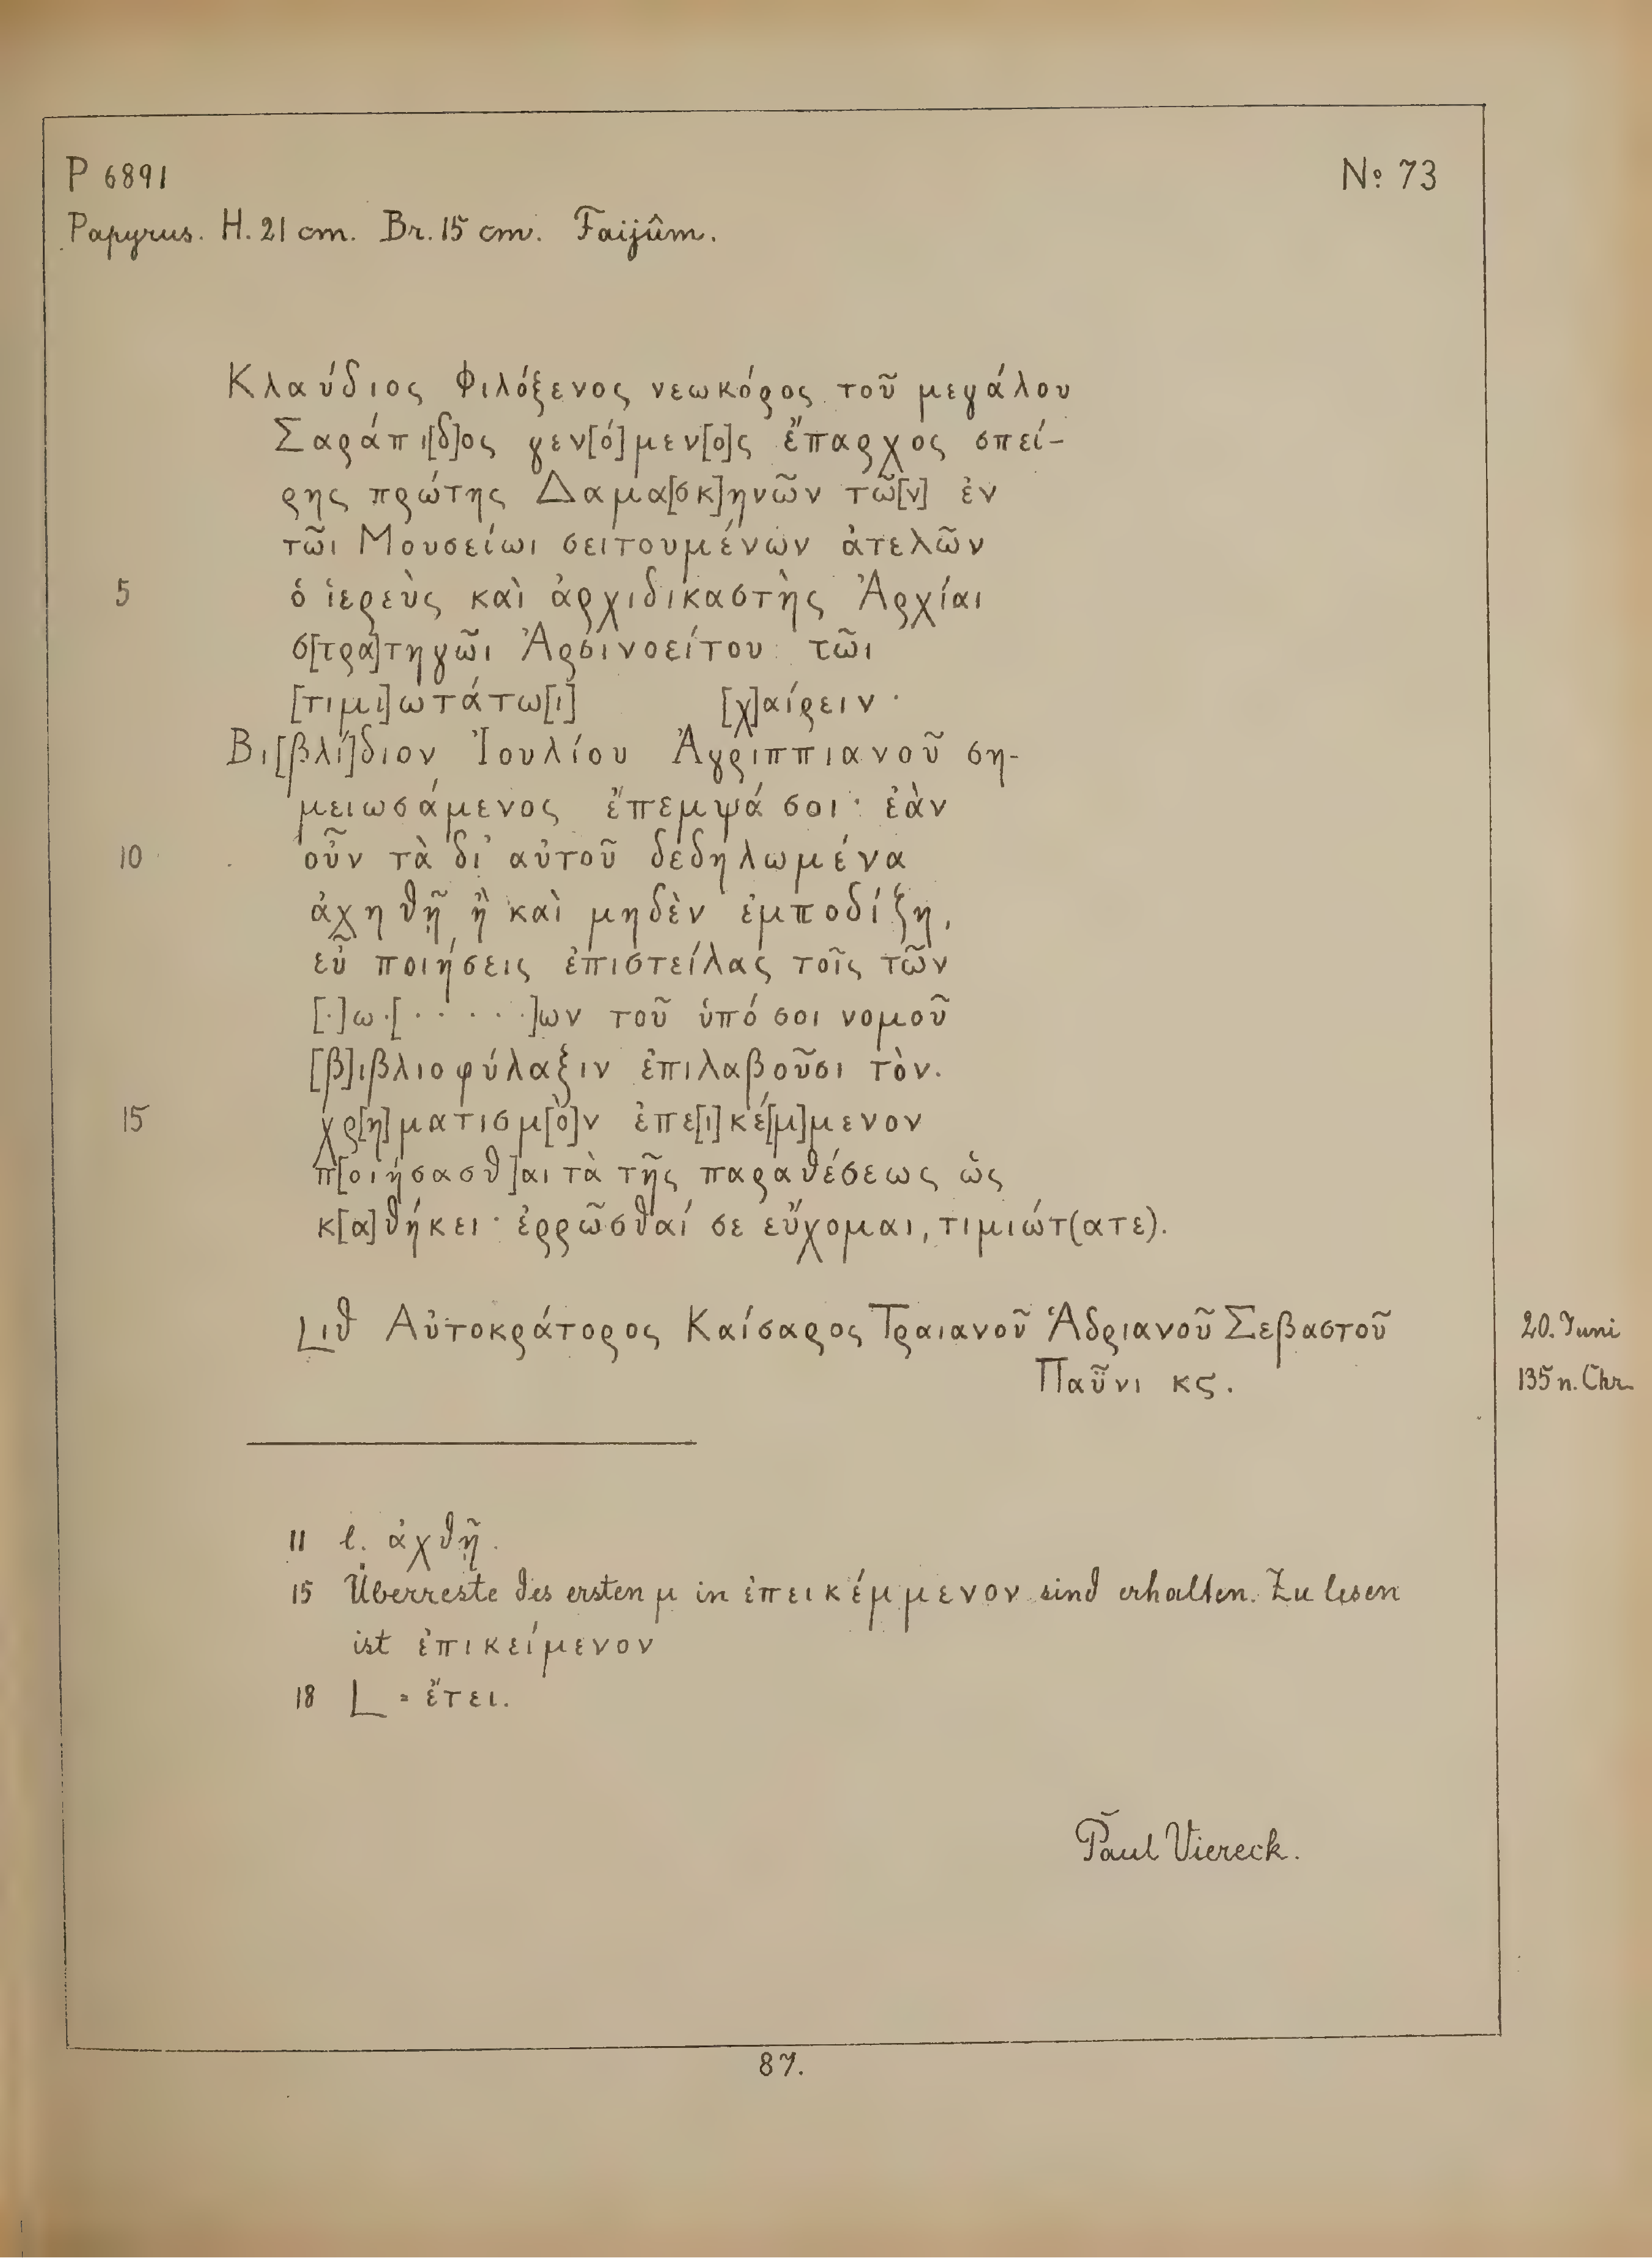 P 6891
No 73
Papyrus. H. 21 cm. Br. 15 cm. Faijûm.
Κλαύδιος Φιλόξενος νεωκόρος τοῦ μεγάλου
Σαράπι[δ]ος γεν[ό]μεν[ο]ς ἔπαρχος σπεί-
ρης πρώτης Δαμα[σκ]ηνῶν τῶ[ν] ἐν
τῶι Μουσείωι σειτουμένων ἀτελῶν
5 ὁ ἱερεὺς καὶ ἀρχιδικαστὴς Ἀρχίαι
σ[τρα]τηγῶι Ἀρσινοείτου τῶι
[τιμι]ωτάτω[ι] [χ]αίρειν ·
Βι[βλί]διον Ἰουλίου Ἀγριππιανοῦ ση-
μειωσάμενος ἔπεμψά σοι · ἐὰν
10 οὖν τὰ δι' αὐτοῦ δεδηλωμένα
ἀχηθῇ ἢ καὶ μηδὲν ἐμποδίζη,
εὖ ποιήσεις ἐπιστείλας τοῖς τῶν
[·]ω·[· · · · ·]ων τοῦ ὑπό σοι νομοῦ
[β]ιβλιοφύλαξιν ἐπιλαβοῦσι τὸν.
15 χρ[η]ματισμ[ὸ]ν ἐπε[ι]κέ[μ]μενον
π[οιήσασθ]αι τὰ τῆς παραθέσεως ὡς
κ[α]θήκει · ἐρρῶσθαί σε εὔχομαι, τιμιώτ(ατε).
Lιθ Αὐτοκράτορος Καίσαρος Τραιανοῦ Ἁδριανοῦ Σεβαστοῦ 20. Juni
Παῦνι κς. 135 n. Chr.
11 l. ἀχθῇ.
15 Überreste des ersten μ in ἐπεικέμμενον sind erhalten. Zu lesen
ist ἐπικείμενον
18 L = ἔτει.
Paul Viereck.
87.